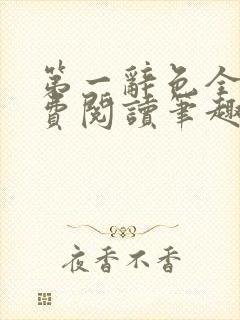 第一辭色全
費閱讀筆趣
夜香不香